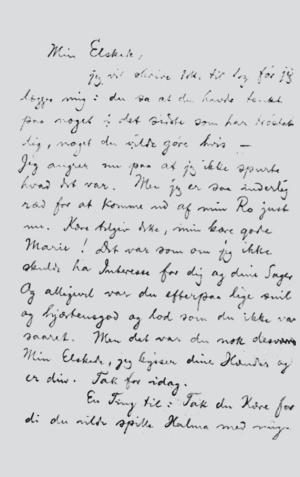 Min Elskede,
jeg vil skrive lidt til Dig før jeg
lægge mig: du sa at du havde tænkt
paa noget i det sidste som har trøstet
dig, noget du vilde gøre hvis —
Jeg angrer nu paa at jeg ikke spurte
hvad det var. Men jeg er saa inderlig
ræd for at komme ud af min Ro just
nu. Kære tilgiv det, min kære gode
Marie! Det var som om jeg ikke
skulde ha Interesse for dig og dine Sager
Og alligevel var du efterpaa lige snil
og hjærtensgod og lod som du ikke var
saaret. Men det var du nok desværre
Min Elskede, jeg kysser dine Hænder og
er din. Tak for idag.
En Ting til: Tak du Kære for
di du vilde spille Halma med mig.